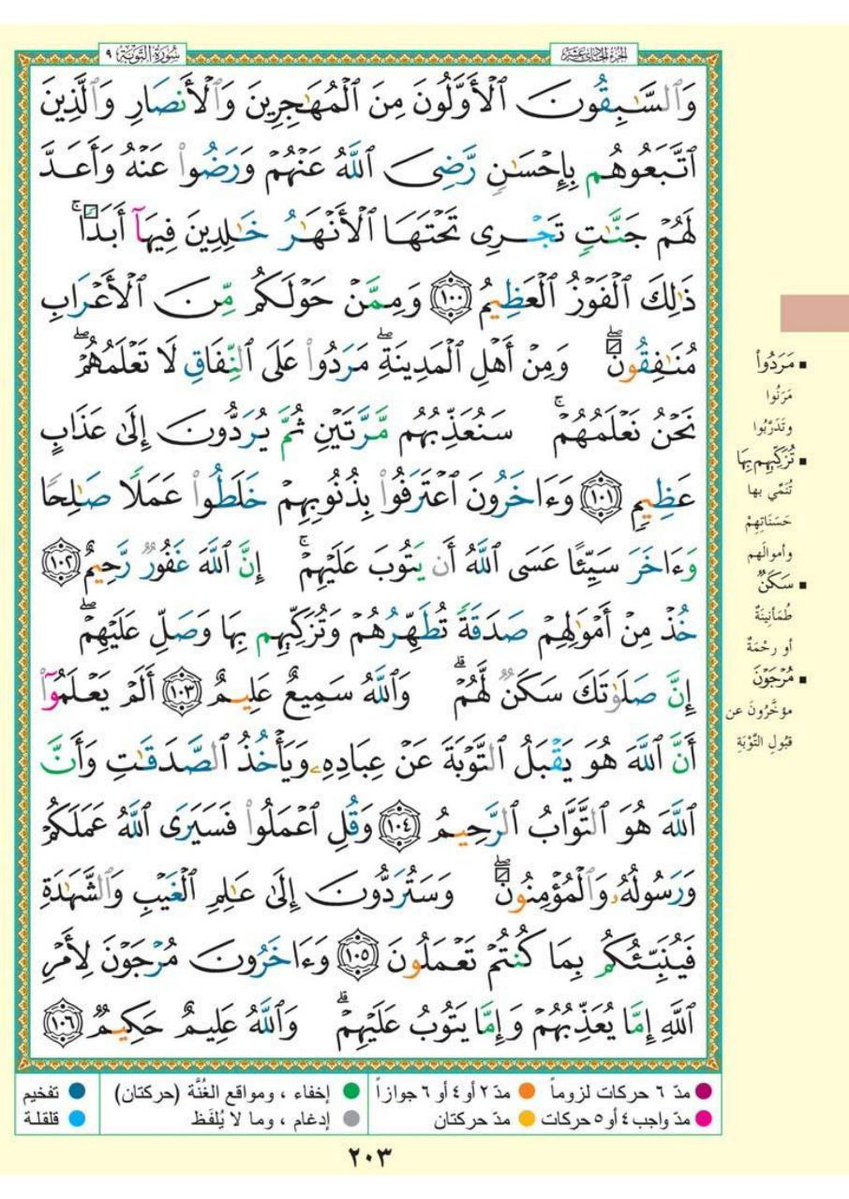 الجزء الحادي عشر
سُورَةُ التَّوْبَة ٩
وَٱلسَّـٰبِقُونَ ٱلْأَوَّلُونَ مِنَ ٱلْمُهَـٰجِرِينَ وَٱلْأَنصَارِ وَٱلَّذِينَ
ٱتَّبَعُوهُم بِإِحْسَـٰنٍ رَّضِىَ ٱللَّهُ عَنْهُمْ وَرَضُوا۟ عَنْهُ وَأَعَدَّ
لَهُمْ جَنَّـٰتٍ تَجْرِى تَحْتَهَا ٱلْأَنْهَـٰرُ خَـٰلِدِينَ فِيهَآ أَبَدًا ۚ
ذَٰلِكَ ٱلْفَوْزُ ٱلْعَظِيمُ ١٠٠ وَمِمَّنْ حَوْلَكُم مِّنَ ٱلْأَعْرَابِ
مُنَـٰفِقُونَ ۖ وَمِنْ أَهْلِ ٱلْمَدِينَةِ ۖ مَرَدُوا۟ عَلَى ٱلنِّفَاقِ لَا تَعْلَمُهُمْ ۖ
نَحْنُ نَعْلَمُهُمْ ۚ سَنُعَذِّبُهُم مَّرَّتَيْنِ ثُمَّ يُرَدُّونَ إِلَىٰ عَذَابٍ
عَظِيمٍ ١٠١ وَءَاخَرُونَ ٱعْتَرَفُوا۟ بِذُنُوبِهِمْ خَلَطُوا۟ عَمَلًا صَـٰلِحًا
وَءَاخَرَ سَيِّئًا عَسَى ٱللَّهُ أَن يَتُوبَ عَلَيْهِمْ ۚ إِنَّ ٱللَّهَ غَفُورٌ رَّحِيمٌ ١٠٢
خُذْ مِنْ أَمْوَٰلِهِمْ صَدَقَةً تُطَهِّرُهُمْ وَتُزَكِّيهِم بِهَا وَصَلِّ عَلَيْهِمْ ۖ
إِنَّ صَلَوٰتَكَ سَكَنٌ لَّهُمْ ۗ وَٱللَّهُ سَمِيعٌ عَلِيمٌ ١٠٣ أَلَمْ يَعْلَمُوٓا۟
أَنَّ ٱللَّهَ هُوَ يَقْبَلُ ٱلتَّوْبَةَ عَنْ عِبَادِهِۦ وَيَأْخُذُ ٱلصَّدَقَـٰتِ وَأَنَّ
ٱللَّهَ هُوَ ٱلتَّوَّابُ ٱلرَّحِيمُ ١٠٤ وَقُلِ ٱعْمَلُوا۟ فَسَيَرَى ٱللَّهُ عَمَلَكُمْ
وَرَسُولُهُۥ وَٱلْمُؤْمِنُونَ ۖ وَسَتُرَدُّونَ إِلَىٰ عَـٰلِمِ ٱلْغَيْبِ وَٱلشَّهَـٰدَةِ
فَيُنَبِّئُكُم بِمَا كُنتُمْ تَعْمَلُونَ ١٠٥ وَءَاخَرُونَ مُرْجَوْنَ لِأَمْرِ
ٱللَّهِ إِمَّا يُعَذِّبُهُمْ وَإِمَّا يَتُوبُ عَلَيْهِمْ ۗ وَٱللَّهُ عَلِيمٌ حَكِيمٌ ١٠٦
مَرَدُوا۟
مَرَنُوا
وَتَدَرَّبُوا
تُزَكِّيهِم بِهَا
تُنَمِّي بها
حَسَنَاتِهِمْ
وأموالَهم
سَكَنٌ
طُمَأنِينَةٌ
أو رحْمَةٌ
مُرْجَوْنَ
مؤخَّرُونَ عن
قَبُولِ التَّوْبَةِ
مدّ ٦ حركات لزوماً مدّ ٢ أو ٤ أو ٦ جوازاً إخفاء ، ومواقع الغُنَّة (حركتان) تفخيم
مدّ واجب ٤ أو ٥ حركات مدّ حركتان إدغام ، وما لا يُلفَظ قلقلة
٢٠٣